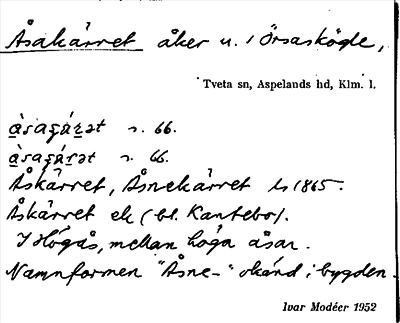 Åsakärret åker u. i Örsaskögle,
Tveta sn, Aspelands hd, Klm. l.
s. 66.
s. 66.
Åskärret, Åsnekärret ls 1865.
Åskärret ek (bl. Kantebo).
I Högås, mellan höga åsar.
Namnformen "Åsne-" okänd i bygden.
Ivar Modéer 1952